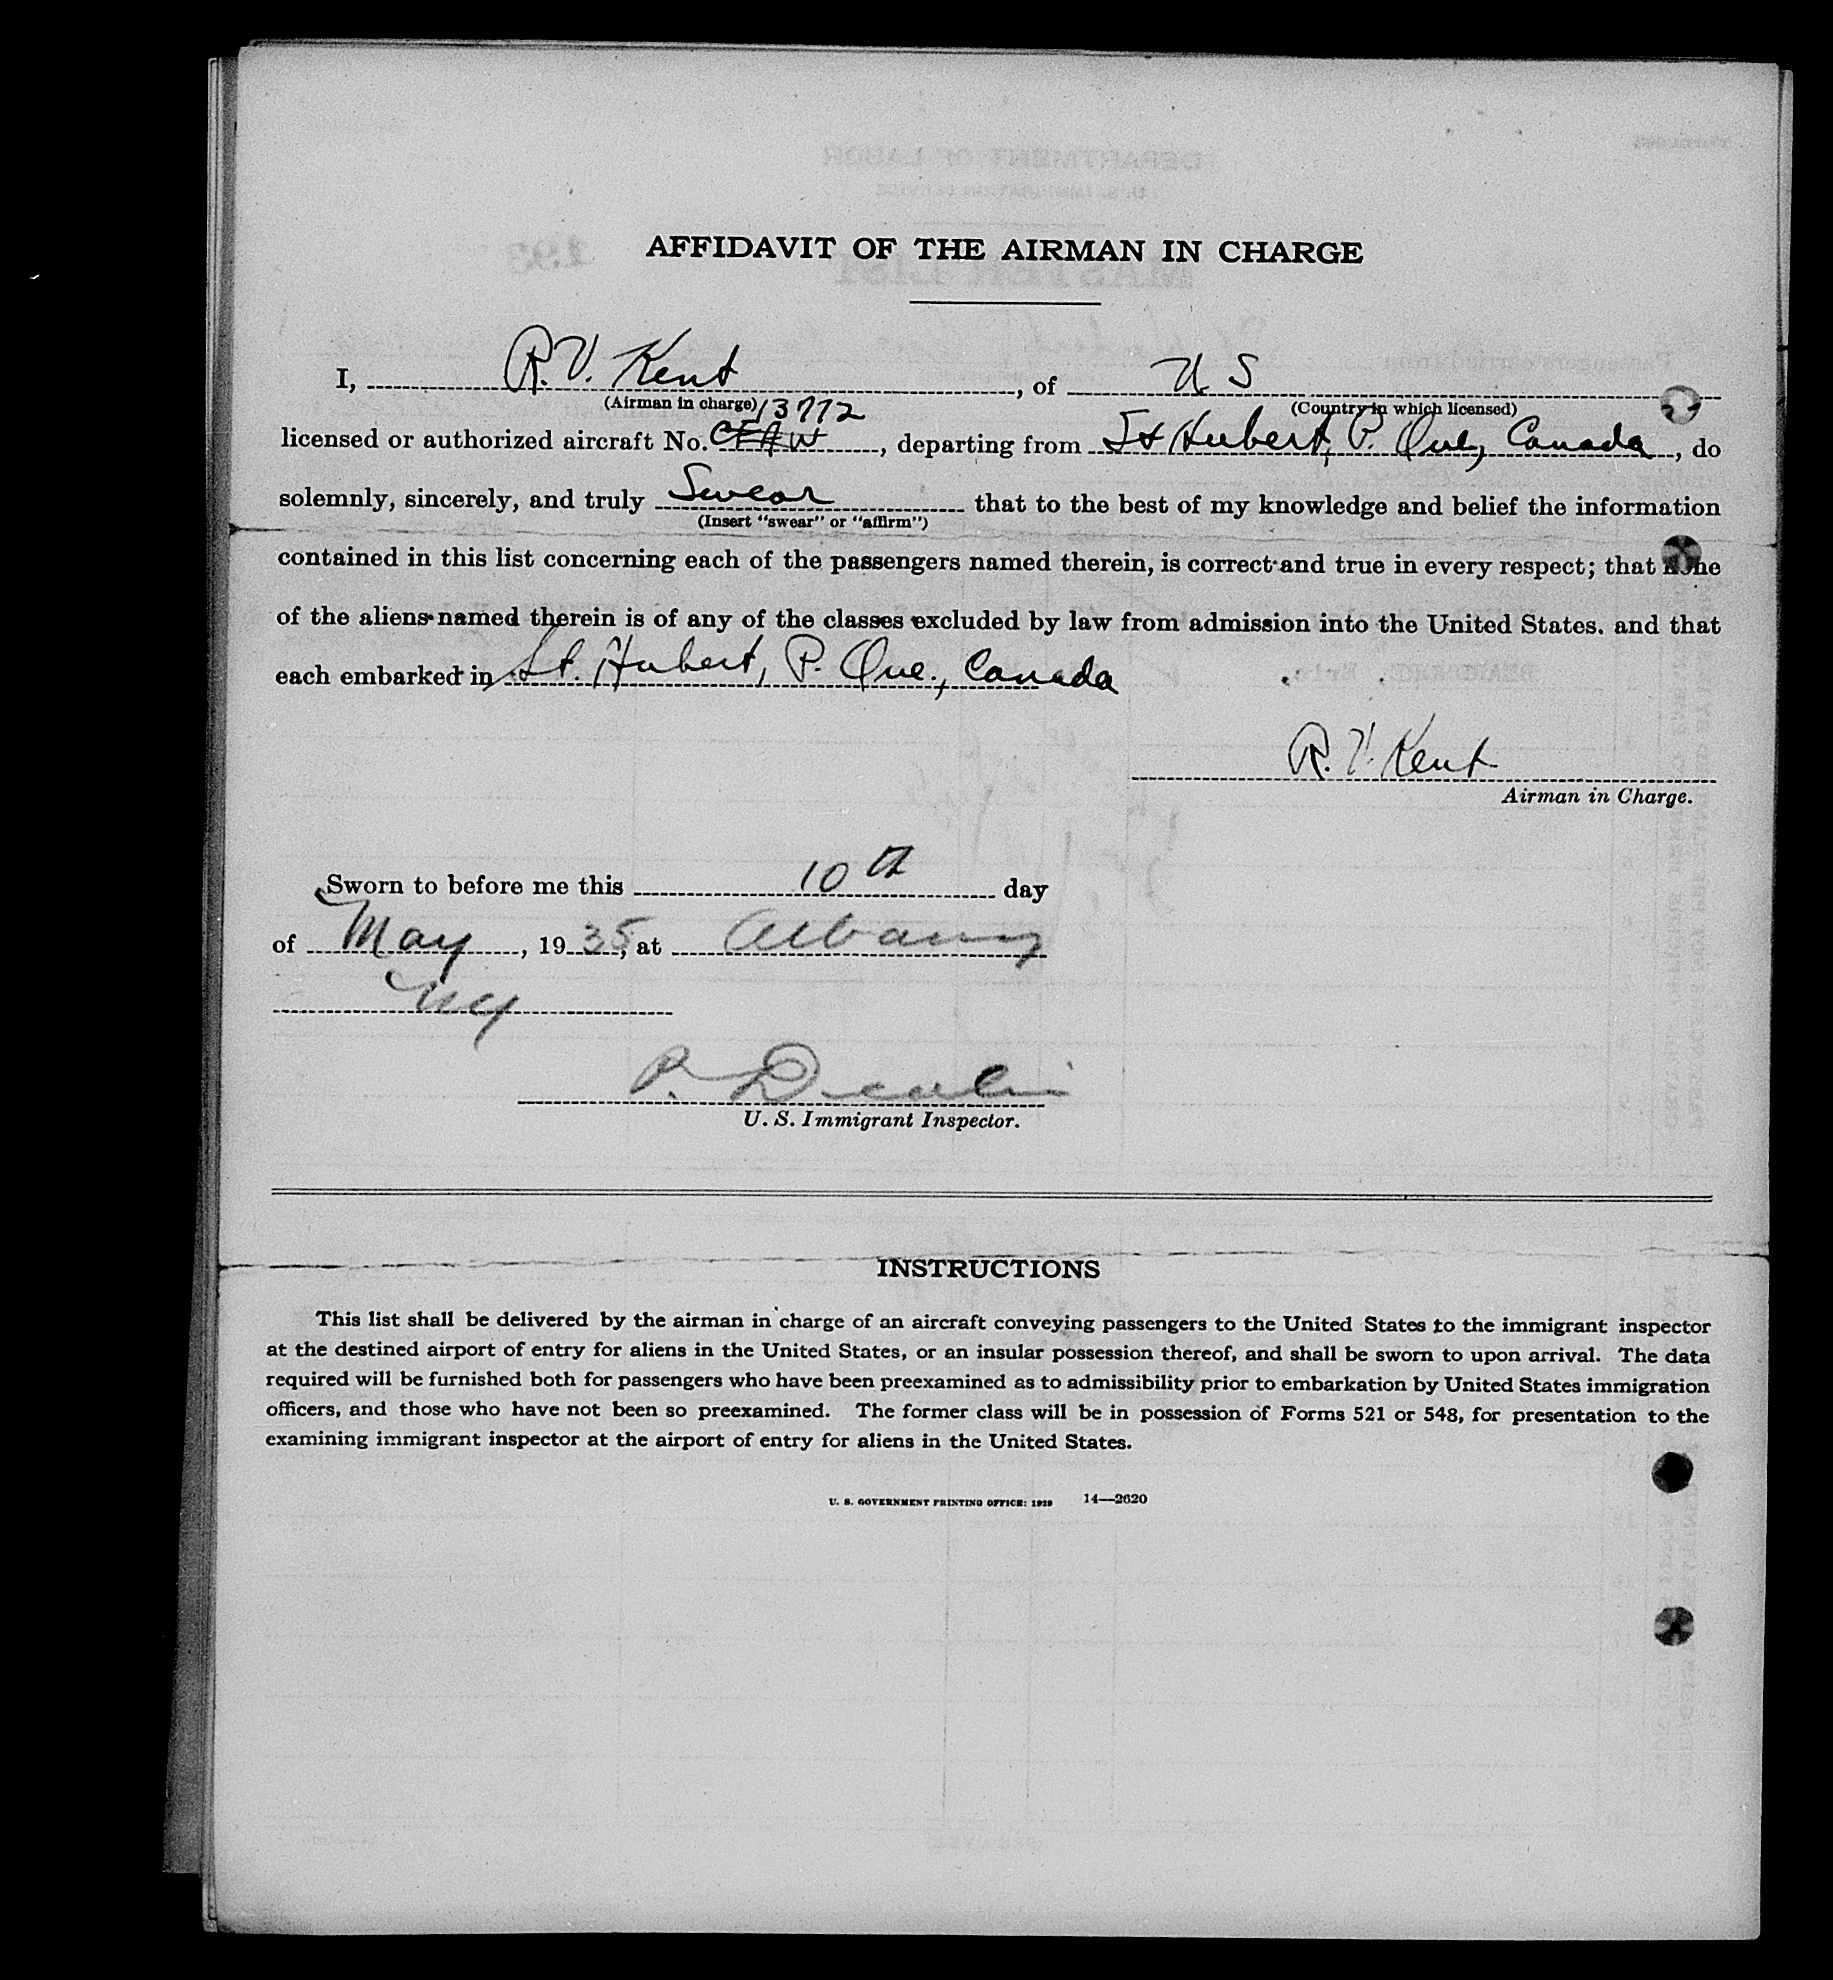 AFFIDAVIT OF THE AIRMAN IN CHARGE
I, R. V. Kent, of U S
(Airman in charge) 13772 (Country in which licensed)
licensed or authorized aircraft No. , departing from St Hubert, P. Que, Canada, do
solemnly, sincerely, and truly Swear that to the best of my knowledge and belief the information
(Insert "swear" or "affirm")
contained in this list concerning each of the passengers named therein, is correct and true in every respect; that none
of the aliens named therein is of any of the classes excluded by law from admission into the United States. and that
each embarked in St. Hubert, P. Que., Canada
R. V. Kent
Airman in Charge.
Sworn to before me this 10th day
of May, 1935, at Albany
NY
P.
U. S. Immigrant Inspector.
INSTRUCTIONS
This list shall be delivered by the airman in charge of an aircraft conveying passengers to the United States to the immigrant inspector
at the destined airport of entry for aliens in the United States, or an insular possession thereof, and shall be sworn to upon arrival. The data
required will be furnished both for passengers who have been preexamined as to admissibility prior to embarkation by United States immigration
officers, and those who have not been so preexamined. The former class will be in possession of Forms 521 or 548, for presentation to the
examining immigrant inspector at the airport of entry for aliens in the United States.
U. S. GOVERNMENT PRINTING OFFICE: 1929 14—2620